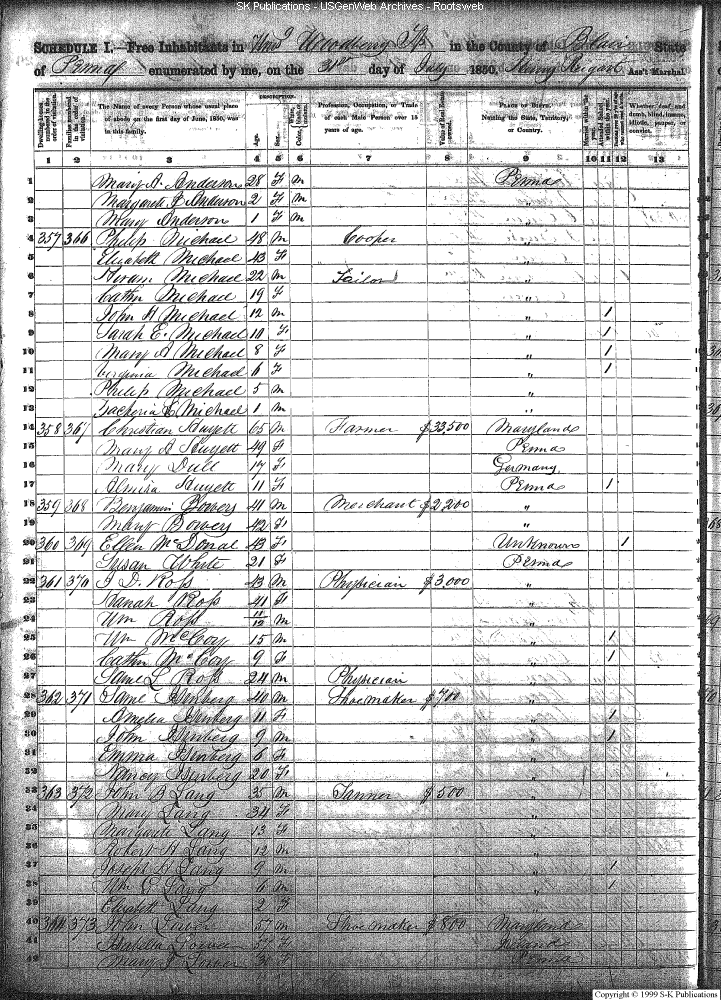 SK Publications - USGenWeb Archives - Rootsweb
SCHEDULE I.—Free Inhabitants in Woodberry Tp in the County of Blair State
of Penna enumerated by me, on the 31st day of July 1850. Ass't Marshal.
DESCRIPTION.
Dwelling-houses numbered in the order of visitation.
Families numbered in the order of visitation.
The Name of every Person whose usual place of abode on the first day of June, 1850, was in this family.
Age.
Sex.
Profession, Occupation, or Trade of each Male Person over 15 years of age.
Value of Real Estate owned.
PLACE OF BIRTH. Naming the State, Territory, or Country.
Whether deaf and dumb, blind, insane, idiotic, pauper, or convict.
1 2 3 4 5 6 7 8 9 10 11 12 13
1 Mary A. Anderson 28 F m Penna
2 Margaret Anderson 2 F m "
3 Mary Anderson 1 F m "
4 357 366 Philip Michael 48 m Cooper "
5 Elizabeth Michael 43 F "
6 Hiram Michael 22 m Tailor "
7 Cathn Michael 19 F "
8 John H Michael 12 m " 1
9 Sarah E. Michael 10 F " 1
10 Mary A Michael 8 F " 1
11 Virginia Michael 6 F " 1
12 Philip Michael 5 m "
13 Michael 1 m "
14 358 367 Christian Huyett 65 m Farmer $33,500 Maryland
15 Mary A Huyett 49 F Penna
16 Mary Dull 17 F Germany
17 Almira Huyett 11 F Penna 1
18 359 368 Benjamin Bowers 41 m Merchant $2,200 "
19 Mary Bowers 42 F "
20 360 369 Ellen McDonal 43 F Unknown 1
21 Susan White 21 F Penna
22 361 370 J D. Ross 43 m Physician $3,000 "
23 Hanah Ross 41 F "
24 Wm Ross 11/12 m "
25 Wm McCoy 15 m " 1
26 Cathn McCoy 9 F " 1
27 Saml L Ross 24 m Physician "
28 362 371 Saml Isenberg 40 m Shoemaker $700 "
29 Amelia Isenberg 11 F " 1
30 John Isenberg 9 m " 1
31 Emma Isenberg 6 F "
32 Nancy Isenberg 20 F "
33 363 372 John B Lang 35 m Tanner $500 "
34 Mary Lang 34 F "
35 Margaret Lang 13 F "
36 Robert H Lang 12 m "
37 Joseph H Lang 9 m " 1
38 Wm Lang 6 m " 1
39 Elizabeth Lang 2 F "
40 364 373 John Lower 57 m Shoemaker $800 Maryland
41 Isabella Lower F Ireland
42 Mary Lower F Penna
Copyright © 1999 S-K Publications